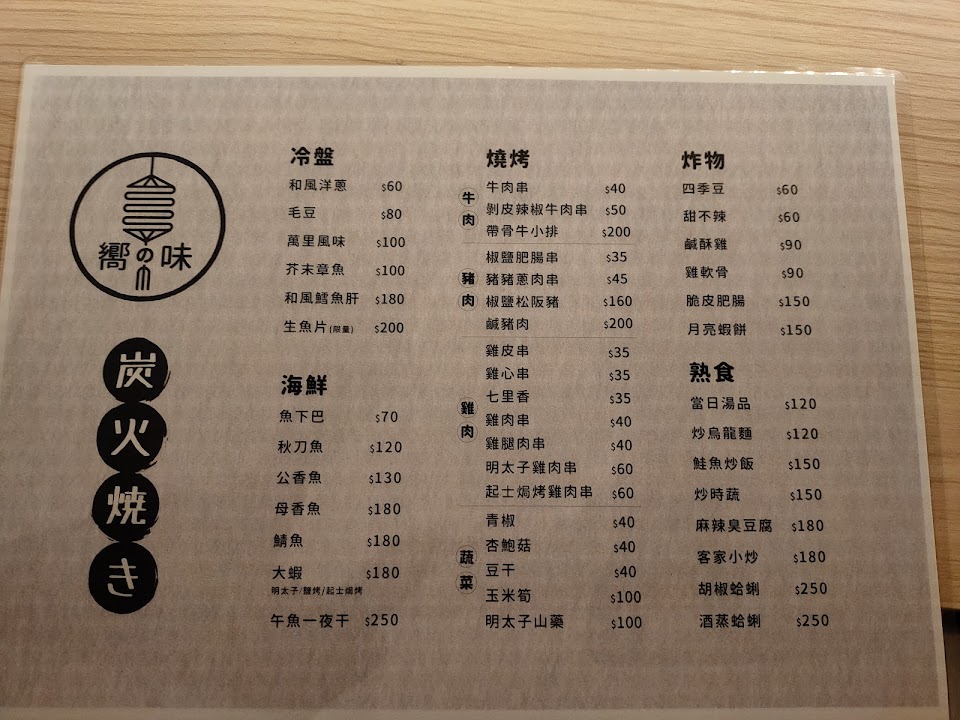 嚮の味
炭火焼き
冷盤
和風洋蔥 $60
毛豆 $80
萬里風味 $100
芥末章魚 $100
和風鱈魚肝 $180
生魚片(限量) $200
海鮮
魚下巴 $70
秋刀魚 $120
公香魚 $130
母香魚 $180
鯖魚 $180
大蝦 $180
明太子/鹽烤/起士焗烤
午魚一夜干 $250
燒烤
牛肉
牛肉串 $40
剝皮辣椒牛肉串 $50
帶骨牛小排 $200
豬肉
椒鹽肥腸串 $35
豬豬蔥肉串 $45
椒鹽松阪豬 $160
鹹豬肉 $200
雞肉
雞皮串 $35
雞心串 $35
七里香 $35
雞肉串 $40
雞腿肉串 $40
明太子雞肉串 $60
起士焗烤雞肉串 $60
蔬菜
青椒 $40
杏鮑菇 $40
豆干 $40
玉米筍 $100
明太子山藥 $100
炸物
四季豆 $60
甜不辣 $60
鹹酥雞 $90
雞軟骨 $90
脆皮肥腸 $150
月亮蝦餅 $150
熟食
當日湯品 $120
炒烏龍麵 $120
鮭魚炒飯 $150
炒時蔬 $150
麻辣臭豆腐 $180
客家小炒 $180
胡椒蛤蜊 $250
酒蒸蛤蜊 $250